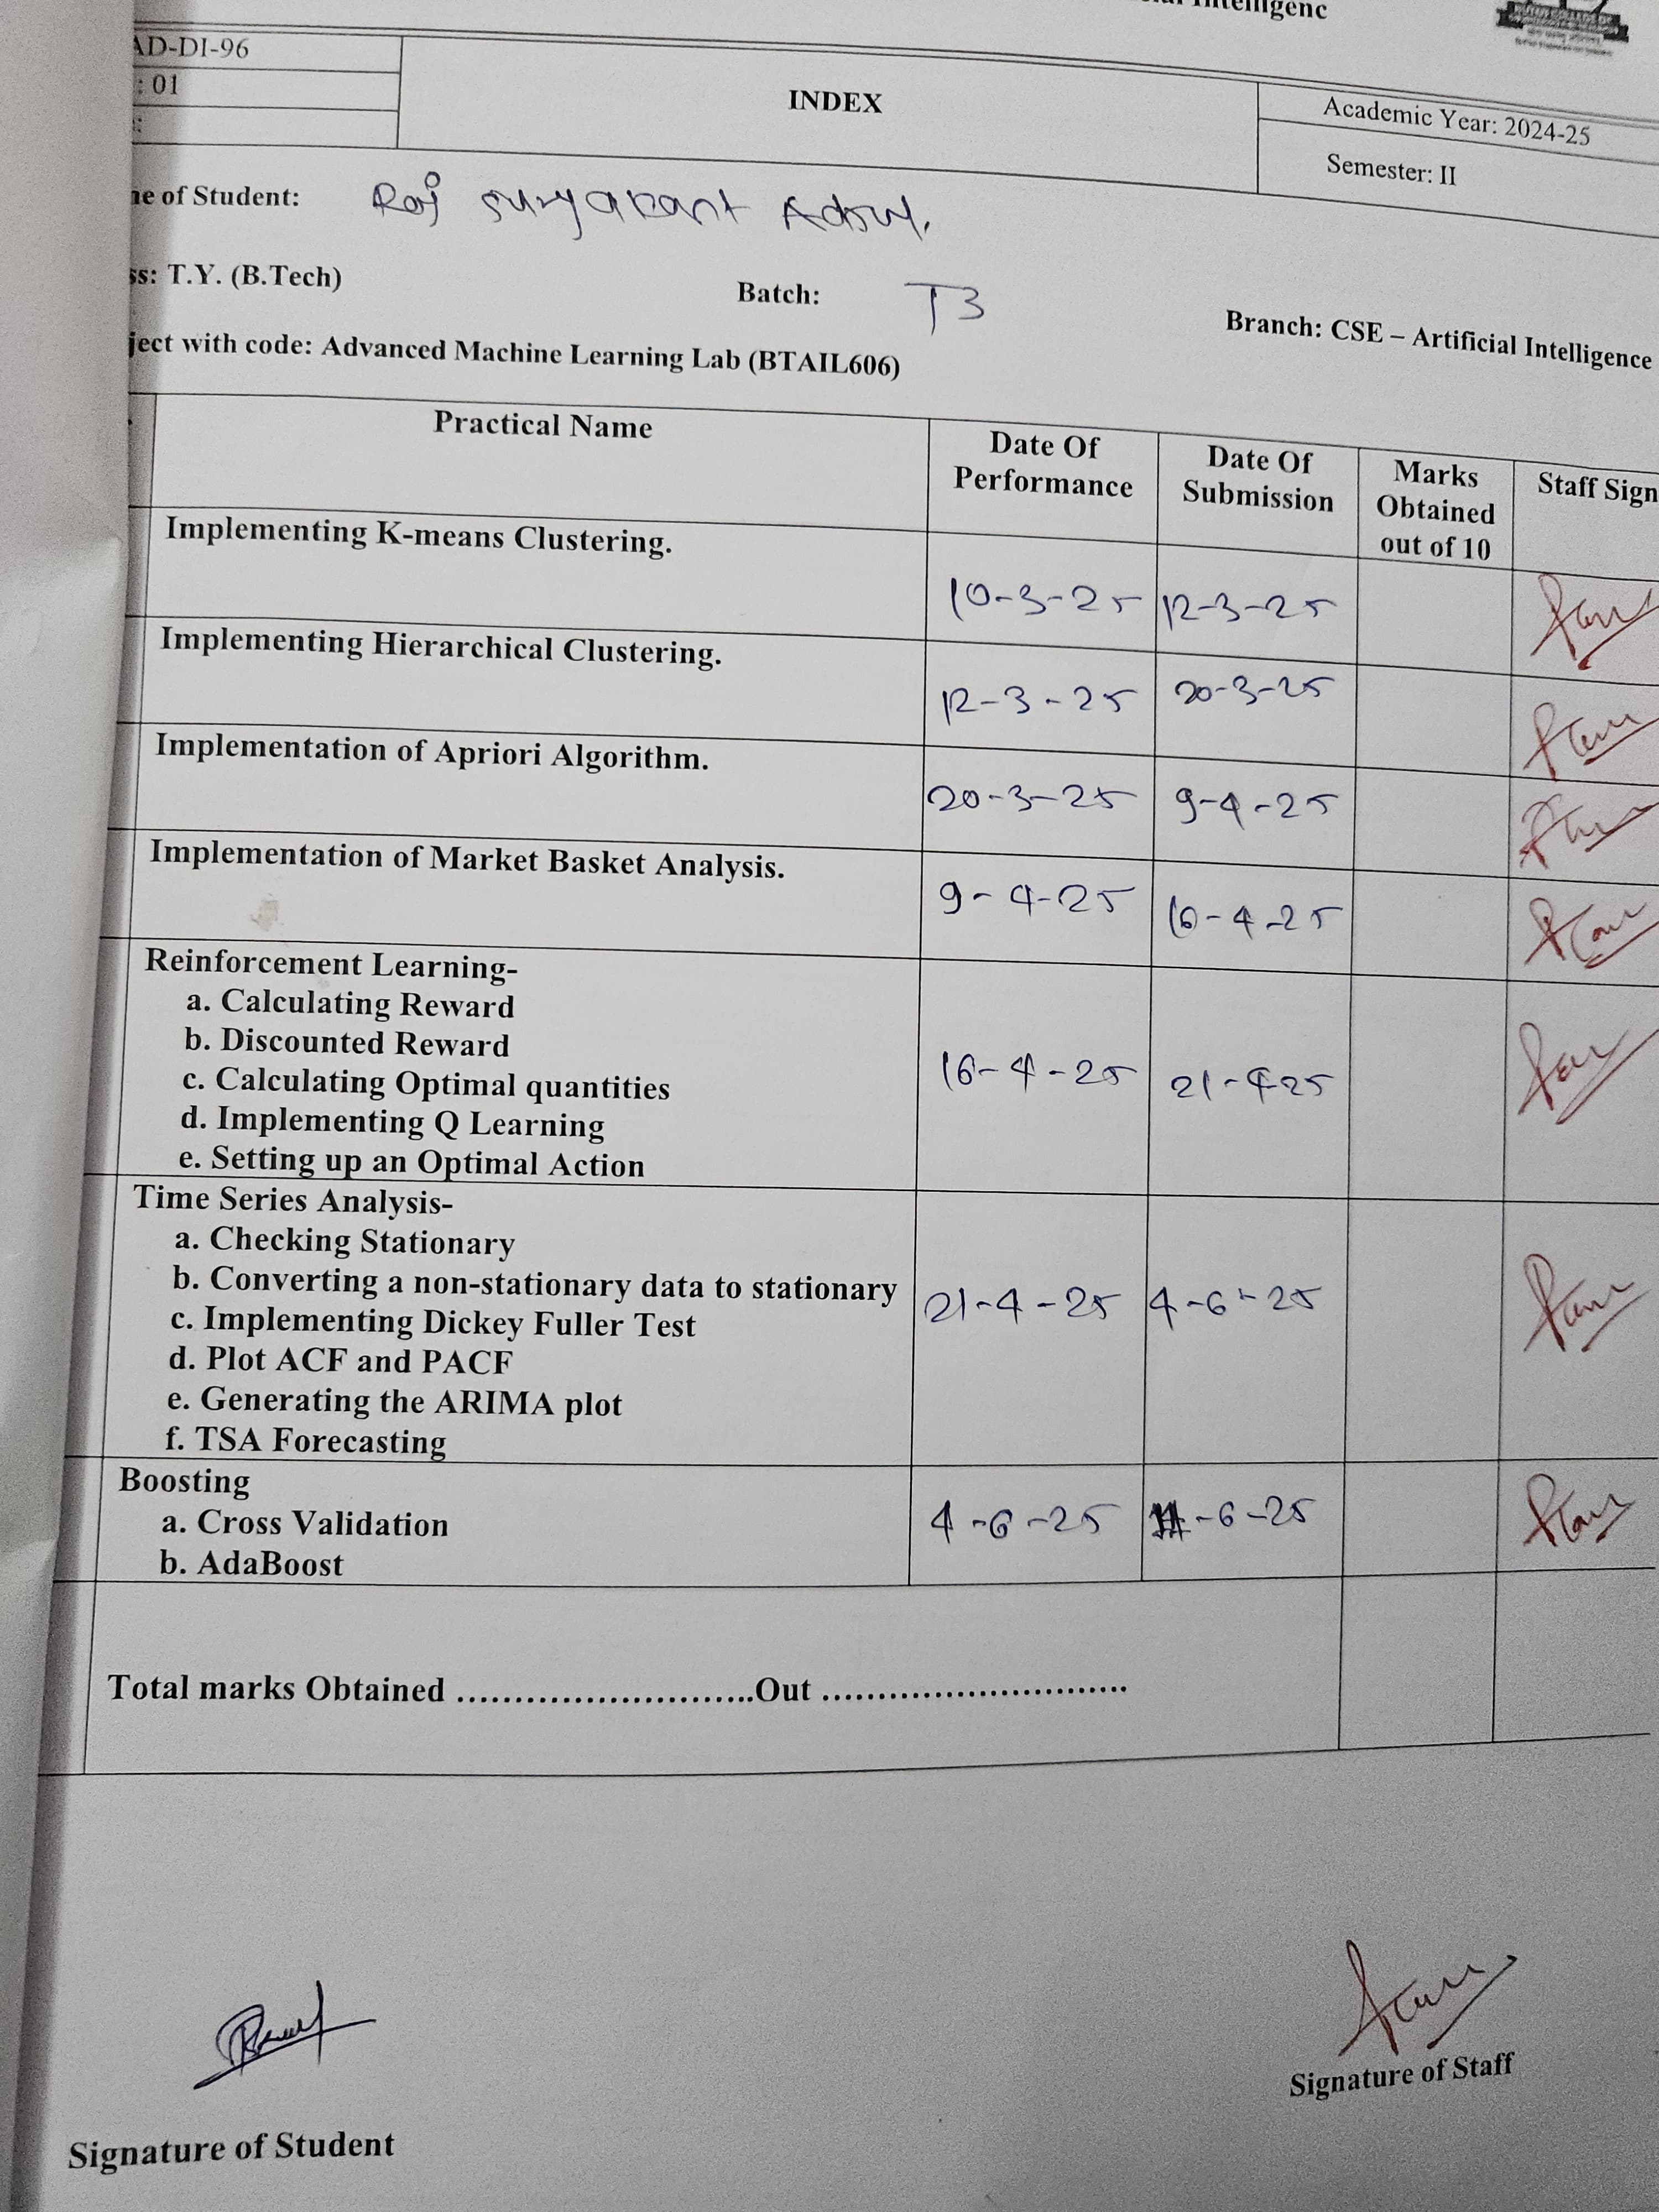 Intelligenc
AD-DI-96
: 01
:
INDEX
Academic Year: 2024-25
Semester: II
ne of Student: Raj Suryakant Adsul.
ss: T.Y. (B.Tech)
Batch: T3
Branch: CSE – Artificial Intelligence
ject with code: Advanced Machine Learning Lab (BTAIL606)
Practical Name
Date Of
Performance
Date Of
Submission
Marks
Obtained
out of 10
Staff Sign
Implementing K-means Clustering.
10-3-25 12-3-25
Implementing Hierarchical Clustering.
12-3-25 20-3-25
Implementation of Apriori Algorithm.
20-3-25 9-4-25
Implementation of Market Basket Analysis.
9-4-25 16-4-25
Reinforcement Learning-
a. Calculating Reward
b. Discounted Reward
c. Calculating Optimal quantities
d. Implementing Q Learning
e. Setting up an Optimal Action
16-4-25 21-4-25
Time Series Analysis-
a. Checking Stationary
b. Converting a non-stationary data to stationary
c. Implementing Dickey Fuller Test
d. Plot ACF and PACF
e. Generating the ARIMA plot
f. TSA Forecasting
21-4-25 4-6-25
Boosting
a. Cross Validation
b. AdaBoost
4-6-25 -6-25
Total marks Obtained ..........................Out ...........................
Signature of Staff
Signature of Student